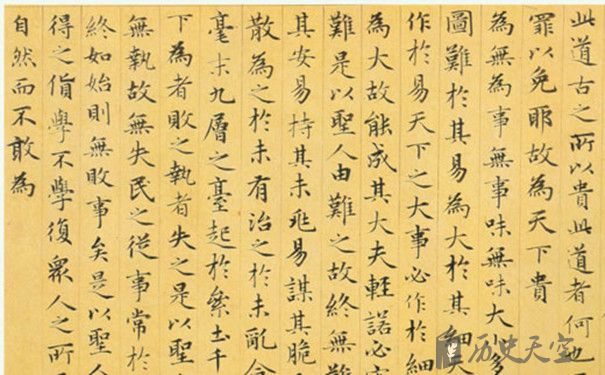 此道古之所以貴此道者何也
罪以免耶故為天下貴
為無為事無事味無味大多
圖難於其易為大於其細
作於易天下之大事必作於細
為大故能成其大夫輕諾必
難是以聖人由難之故終無難
其安易持其未兆易謀其脆
散為之於未有治之於未亂合
毫末九層之臺起於累土千
下為者敗之執者失之是以聖
無執故無失民之從事常於
終如始則無敗事矣是以聖人
得之貨學不學復眾人之所
自然而不敢為
历史天空